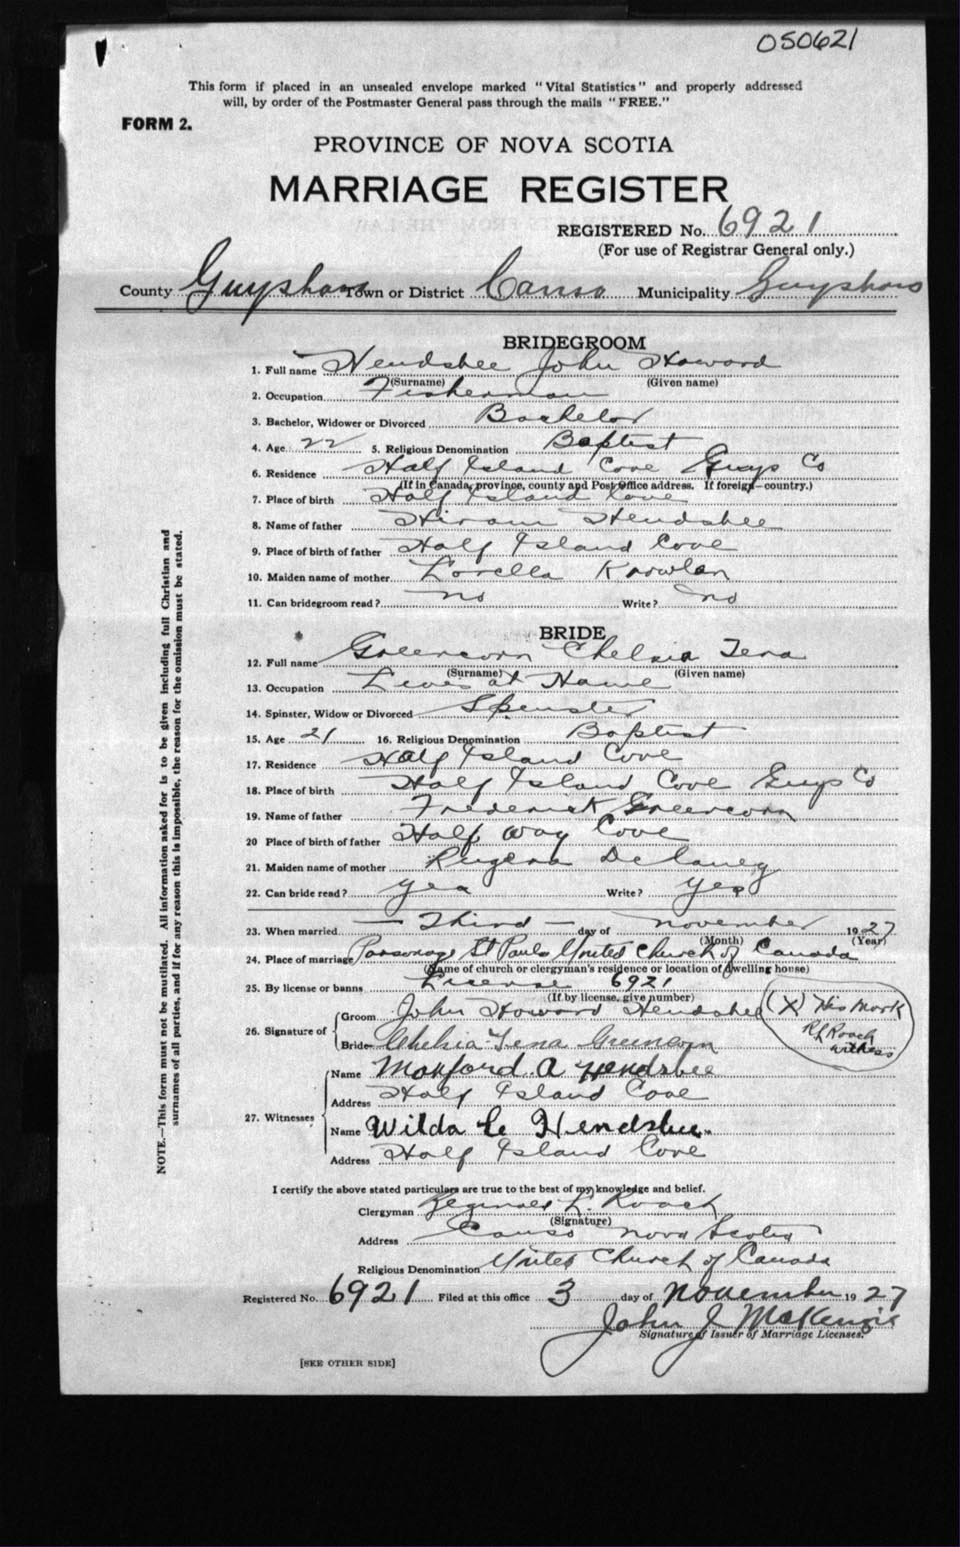 050621
This form if placed in an unsealed envelope marked "Vital Statistics" and properly addressed
will, by order of the Postmaster General pass through the mails "FREE."
FORM 2.
PROVINCE OF NOVA SCOTIA
MARRIAGE REGISTER
REGISTERED No. 6921
(For use of Registrar General only.)
County Guysboro Town or District Canso Municipality Guysboro
BRIDEGROOM
1. Full name Hendsbee John Howard
(Surname) (Given name)
2. Occupation Fisherman
3. Bachelor, Widower or Divorced Bachelor
4. Age 22 5. Religious Denomination Baptist
6. Residence Half Island Cove Guys Co
(If in Canada, province, county and Post Office address. If foreign—country.)
7. Place of birth Half Island Cove
8. Name of father Hiram Hendsbee
9. Place of birth of father Half Island Cove
10. Maiden name of mother Lorella Knowlan
11. Can bridegroom read? no Write? no
BRIDE
12. Full name Greencorn Chelsia Tena
(Surname) (Given name)
13. Occupation Lives at Home
14. Spinster, Widow or Divorced Spinster
15. Age 21 16. Religious Denomination Baptist
17. Residence Half Island Cove
18. Place of birth Half Island Cove Guys Co
19. Name of father Frederick Greencorn
20 Place of birth of father Half Way Cove
21. Maiden name of mother Delaney
22. Can bride read? yes Write? yes
23. When married — Third — day of november 1927
(Month) (Year)
24. Place of marriage Parsonage St Pauls United Church of Canada
(Name of church or clergyman's residence or location of dwelling house)
25. By license or banns License 6921
(If by license, give number)
26. Signature of Groom John Howard Hendsbee (X) His Mark
R L Roach
witness
Bride Chelsia Tena Greencorn
27. Witnesses Name Monford A Hendsbee
Address Half Island Cove
Name Wilda Hendsbee
Address Half Island Cove
I certify the above stated particulars are true to the best of my knowledge and belief.
Clergyman Reginald L. Roach
(Signature)
Address Canso Nova Scotia
Religious Denomination United Church of Canada
Registered No. 6921 Filed at this office 3 day of November 1927
John J McKenzie
Signature of Issuer of Marriage Licenses.
[SEE OTHER SIDE]
NOTE.—This form must not be mutilated. All information asked for is to be given including full Christian and
surnames of all parties, and if for any reason this is impossible, the reason for the omission must be stated.